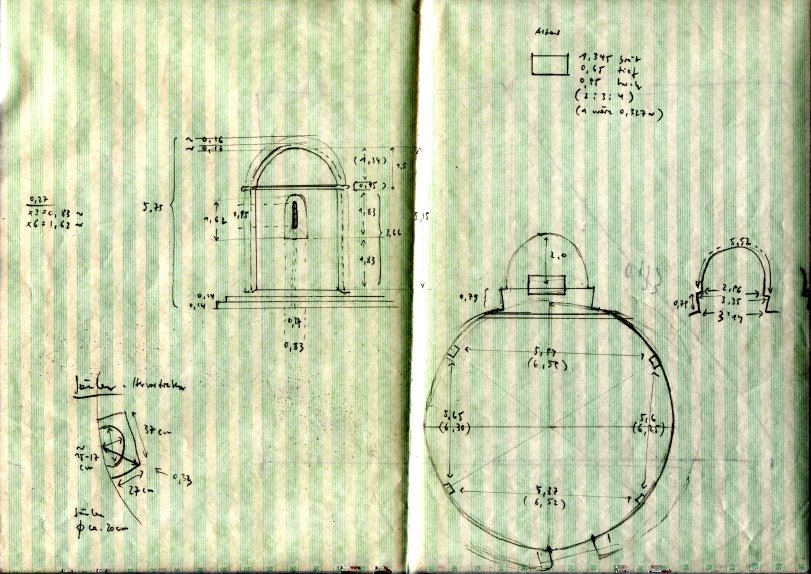 ~ 0,16
~ 0,16
5,75
(1,34)
1,5
(0,95)
0,27
x 3 = 0,83 ~
x 6 = 1,62 ~
1,62
0,95
1,83
3,66
1,83
5,15
0,14
0,14
0,27
0,83
Säulen
37 cm
~
15-17
cm
27 cm
0,33
Säulen
ϕ ca. 20 cm
1,345 breit
0,65 tief
0,95 hoch
(2 : 3 : 4)
(1 wäre 0,327 ~)
2,0
0,79
5,52
2,96
3,35
3,14
0,79
5,97
(6,55)
5,65
(6,30)
5,6
(6,25)
5,87
(6,52)